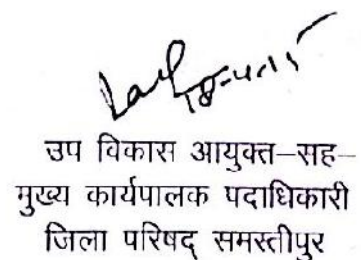 उप विकास आयुक्त–सह–
मुख्य कार्यपालक पदाधिकारी
जिला परिषद् समस्तीपुर